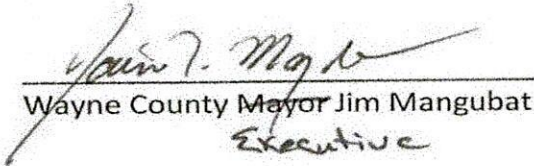 Wayne County Mayor Jim Mangubat
Executive